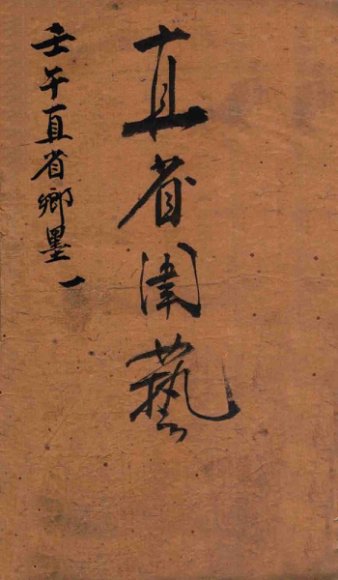 直省闈藝
壬午直省鄉墨 一